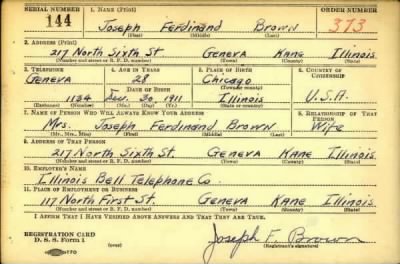 SERIAL NUMBER 1. NAME (Print) ORDER NUMBER
144 Joseph Ferdinand Brown 373
(First) (Middle) (Last)
2. ADDRESS (Print)
217 North Sixth St Geneva Kane Illinois
(Number and street or R. F. D. number) (Town) (County) (State)
3. TELEPHONE 4. AGE IN YEARS 5. PLACE OF BIRTH 6. COUNTRY OF CITIZENSHIP
Geneva 28 Chicago
(Town or county)
DATE OF BIRTH
1134 Dec. 30 1911 Illinois U.S.A.
(Exchange) (Number) (Mo.) (Day) (Yr.) (State or country)
7. NAME OF PERSON WHO WILL ALWAYS KNOW YOUR ADDRESS 8. RELATIONSHIP OF THAT PERSON
Mrs. Joseph Ferdinand Brown Wife
(Mr., Mrs., Miss) (First) (Middle) (Last)
9. ADDRESS OF THAT PERSON
217 North Sixth St. Geneva Kane Illinois
(Number and street or R. F. D. number) (Town) (County) (State)
10. EMPLOYER'S NAME
Illinois Bell Telephone Co
11. PLACE OF EMPLOYMENT OR BUSINESS
117 North First St. Geneva Kane Illinois.
(Number and street or R. F. D. number) (Town) (County) (State)
I AFFIRM THAT I HAVE VERIFIED ABOVE ANSWERS AND THAT THEY ARE TRUE.
REGISTRATION CARD
D. S. S. Form 1 (over) Joseph F. Brown
(Registrant's signature)